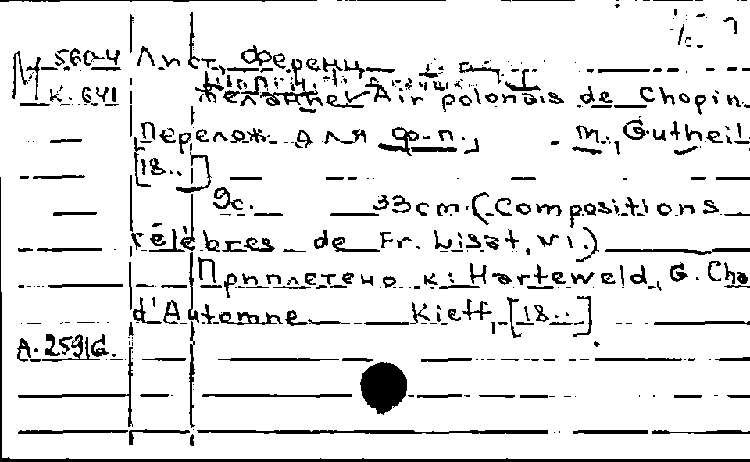 М 560-4 Лист, Ференц
К. 641 Желание Air polonais de Chopin.
Перелож. для ф-п., - м., Gutheil,
[18..]
9с. 33cm. (Compositions
célèbres de Fr. Liszt, N1.)
Приплетено к: Harteweld, G. Cha
d'Automne. Kieff, [18..].
A. 2591б.